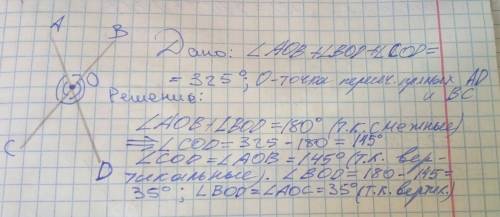 A
B
O
C
D
Дано: ∠AOB+∠BOD+∠COD=
=325°; O-точка пересч. прямых AD
и BC
Решение:
∠AOB+∠BOD=180° (т.к. смежные)
⇒∠COD=325-180=145°
∠COD=∠AOB=145° (т.к. вер-
тикальные). ∠BOD=180-145=
35°; ∠BOD=∠AOC=35° (т.к. вертик.)